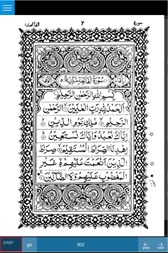 سورة
بِسْمِ اللهِ الرَّحْمٰنِ الرَّحِيْمِ
اَلْحَمْدُ لِلّٰهِ رَبِّ الْعٰلَمِيْنَ الرَّحْمٰنِ
الرَّحِيْمِ مٰلِكِ يَوْمِ الدِّيْنِ
اِيَّاكَ نَعْبُدُ وَاِيَّاكَ نَسْتَعِيْنُ
اِهْدِنَا الصِّرَاطَ الْمُسْتَقِيْمَ صِرَاطَ
الَّذِيْنَ اَنْعَمْتَ عَلَيْهِمْ غَيْرِ
الْمَغْضُوْبِ عَلَيْهِمْ وَلَا الضَّآلِّيْنَ
page go